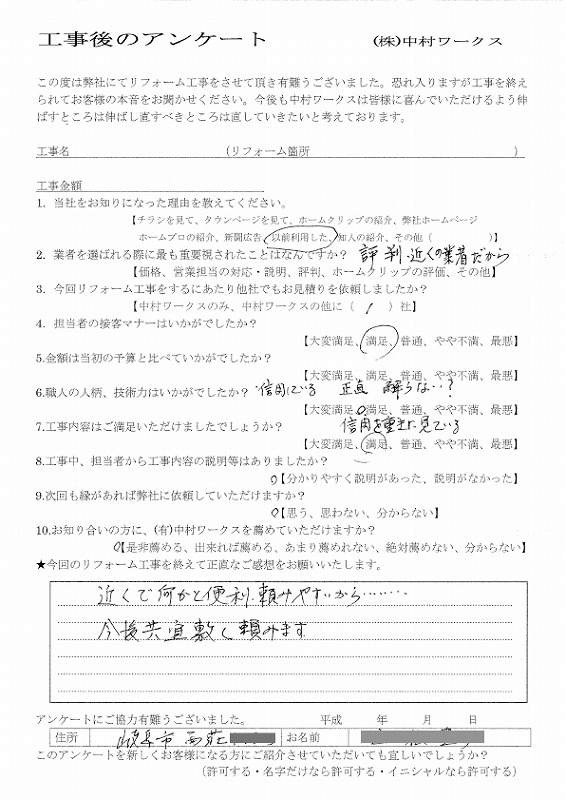 工事後のアンケート (株)中村ワークス
この度は弊社にてリフォーム工事をさせて頂き有難うございました。恐れ入りますが工事を終え
られてお客様の本音をお聞かせください。今後も中村ワークスは皆様に喜んでいただけるよう伸
ばすところは伸ばし直すべきところは直していきたいと考えております。
工事名 (リフォーム箇所 )
工事金額
1. 当社をお知りになった理由を教えてください。
【チラシを見て、タウンページを見て、ホームクリップの紹介、弊社ホームページ
ホームプロの紹介、新聞広告、以前利用した、知人の紹介、その他（ )】
2. 業者を選ばれる際に最も重要視されたことはなんですか？ 評判、近くの業者だから
【価格、営業担当の対応・説明、評判、ホームクリップの評価、その他】
3. 今回リフォーム工事をするにあたり他社でもお見積りを依頼しましたか？
【中村ワークスのみ、中村ワークスの他に（ 1 ）社】
4. 担当者の接客マナーはいかがでしたか？
【大変満足、満足、普通、やや不満、最悪】
5.金額は当初の予算と比べていかがでしたか？
【大変満足、満足、普通、やや不満、最悪】
6.職人の人柄、技術力はいかがでしたか？ 信用している 正直 解らない‥？
【大変満足、満足、普通、やや不満、最悪】
7.工事内容はご満足いただけましたでしょうか？ 信用を重きに見ている
【大変満足、満足、普通、やや不満、最悪】
8.工事中、担当者から工事内容の説明等はありましたか？
【分かりやすく説明があった、説明がなかった】
9.次回も縁があれば弊社に依頼していただけますか？
【思う、思わない、分からない】
10.お知り合いの方に、(有)中村ワークスを薦めていただけますか？
【是非薦める、出来れば薦める、あまり薦めれない、絶対薦めない、分からない】
★今回のリフォーム工事を終えて正直なご感想をお願いいたします。
近くで何かと便利、頼みやすいから‥‥‥‥
今後共宜敷く頼みます
アンケートにご協力有難うございました。 平成 年 月 日
住所 岐阜市西荘 お名前
このアンケートを新しくお客様になる方にご紹介させていただいても宜しいでしょうか？
（許可する・名字だけなら許可する・イニシャルなら許可する）